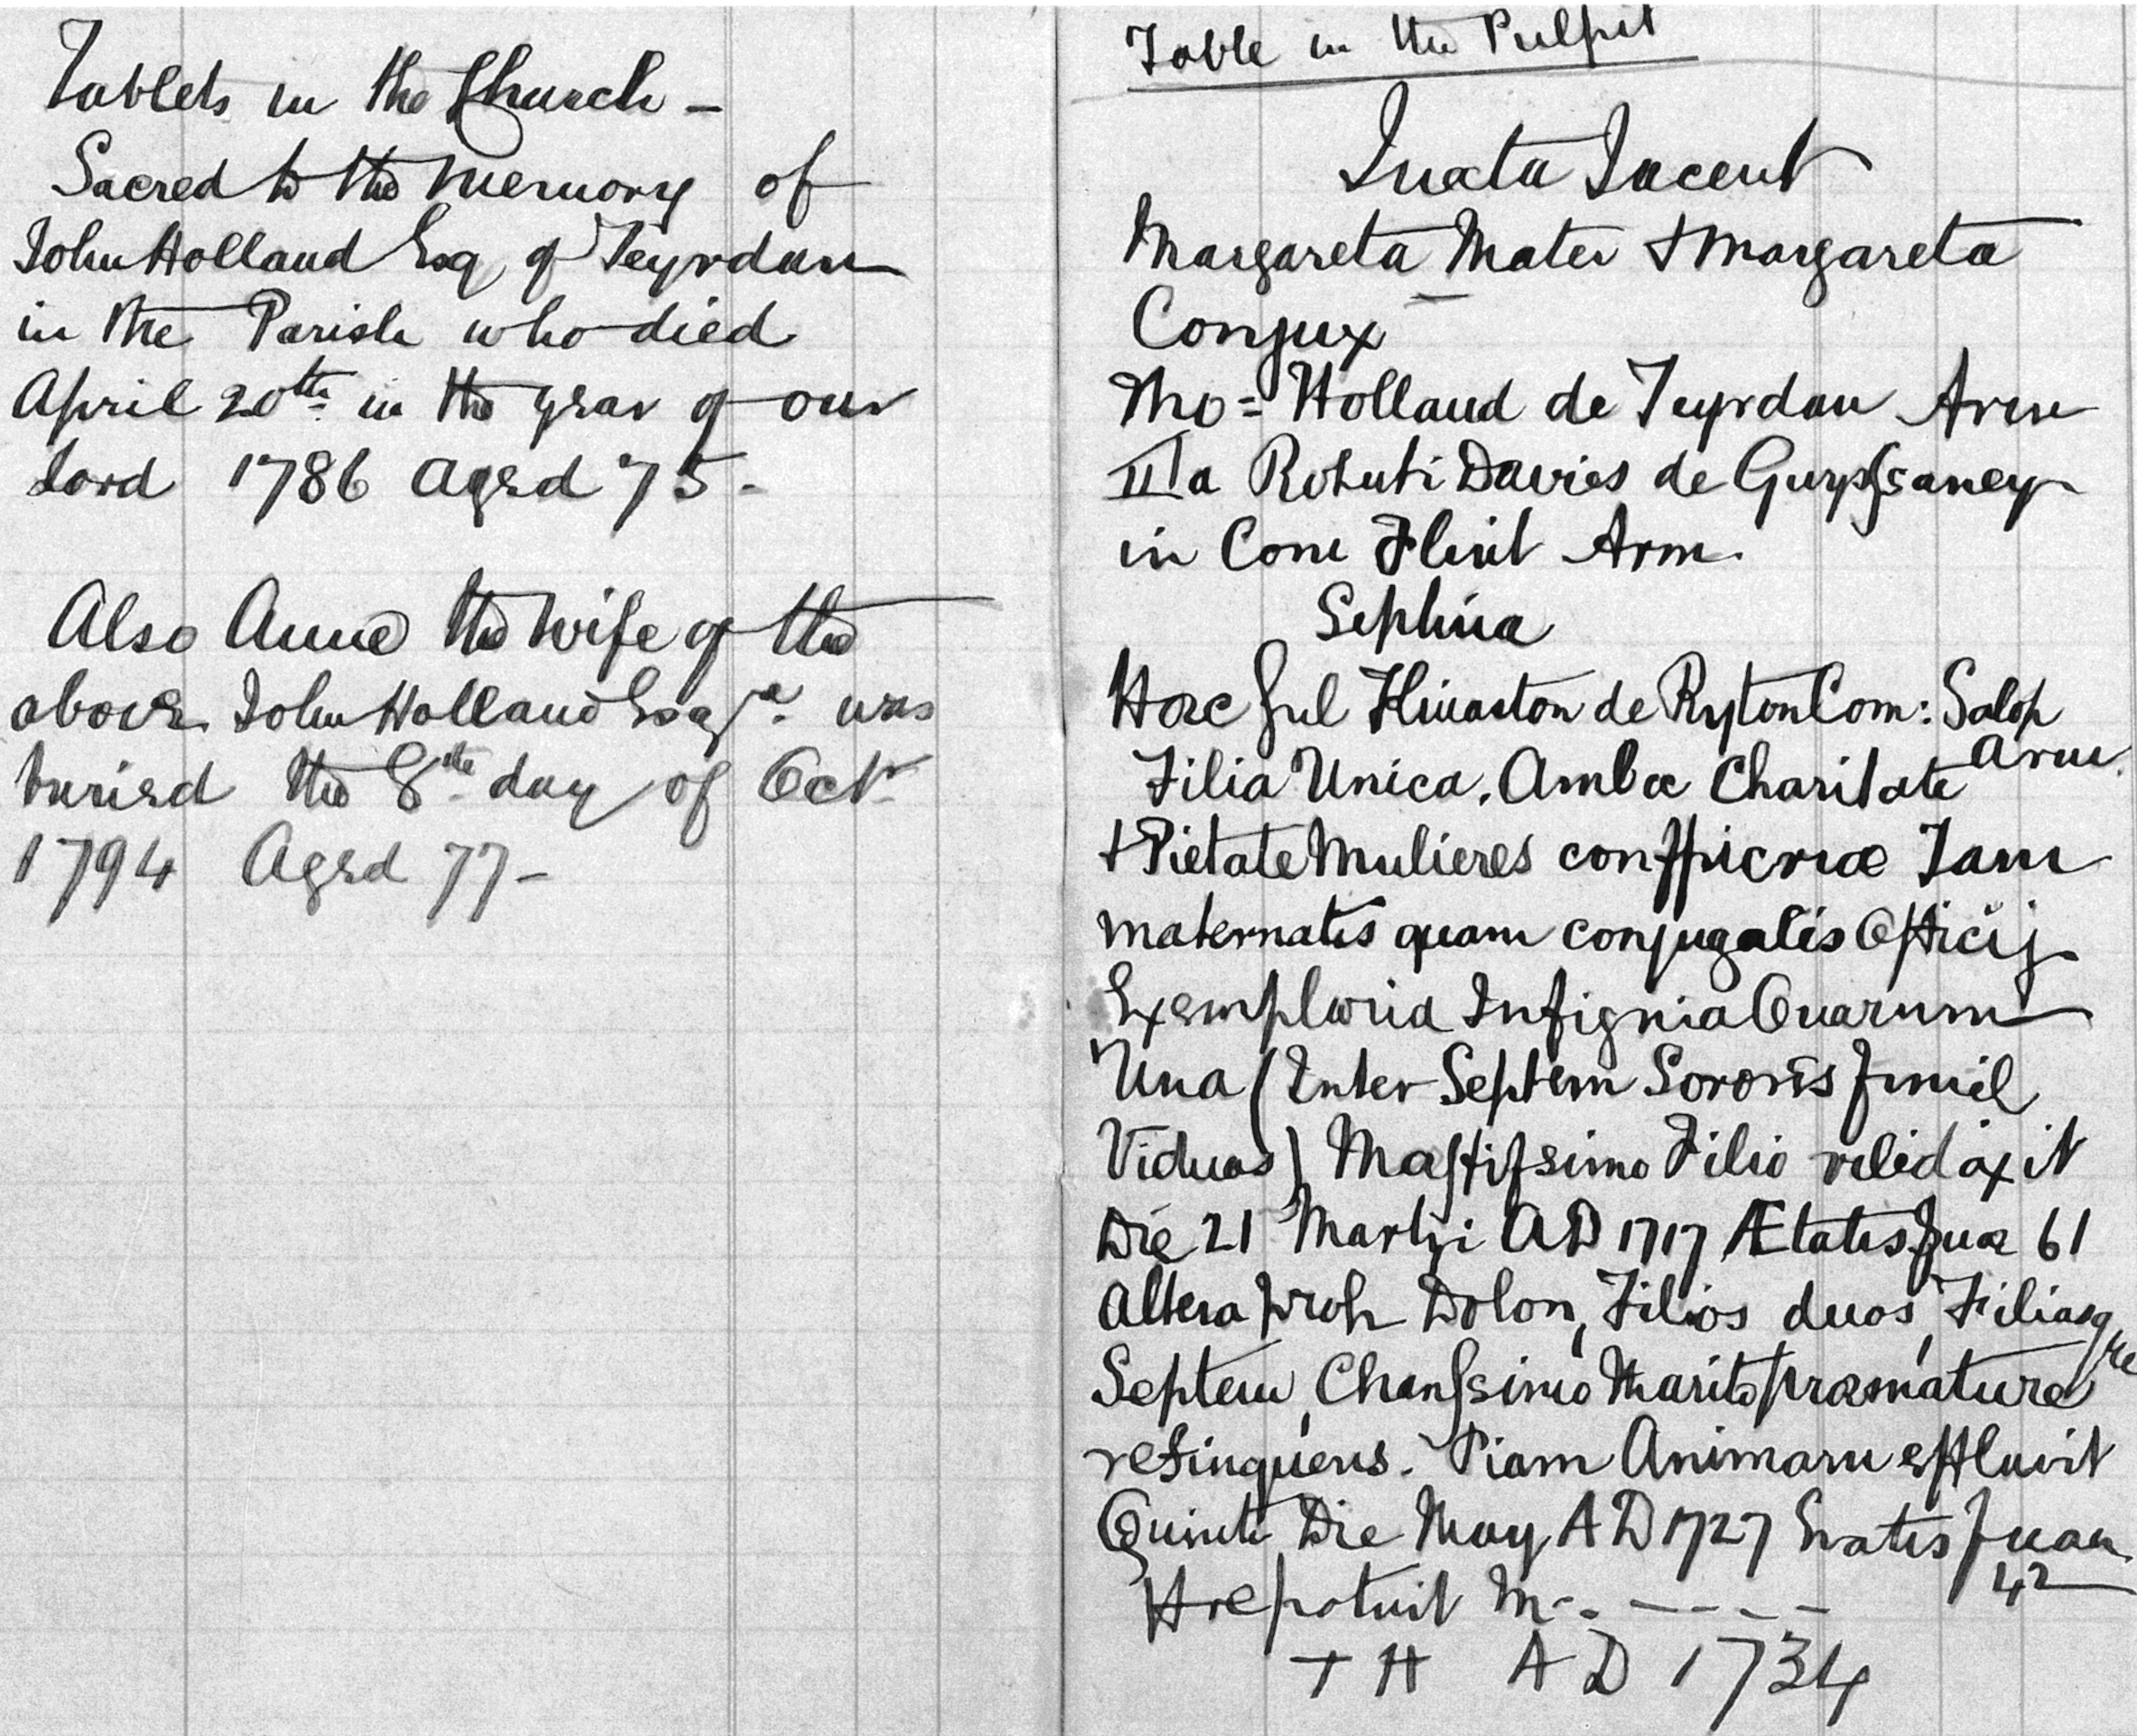 Tablets in the Church –
Sacred to the memory of
John Holland Esq of Teyrdan
in the Parish who died
April 20th in the year of our
Lord 1786 Aged 75 -
Also Anne the wife of the
above John Holland Esqre was
buried the 8th day of Octr
1794 Aged 77 -
Table in the Pulpit
Juxta Jacent
Margareta Mater & Margareta
Conjux
Tho= Holland de Teyrdan Arm
IIIa Roberti Davies de Gwysaney
in Com Flint Arm.
Sephina
Haec Gul Kinaston de Ryton Com: Salop
Arm.
Filia Unica. Ambæ Charitate
& Pietate Mulieres conspicuæ Tam
maternatis quam conjugalis Officij
Exemplaria Insignia Quarum
Una (Inter Septem Sorores simil
Viduas) Mæstissimo Filio
Die 21 Martji AD 1717 Ætatis Suæ 61
Altera proh Dolon, Filios duos, Filiasque
Septem, Charissimo Marito præmature
relinquens. Piam Animam efflavit
Quinto Die May AD 1727 Suæ
42
H m-. - - - -
T H A D 1734